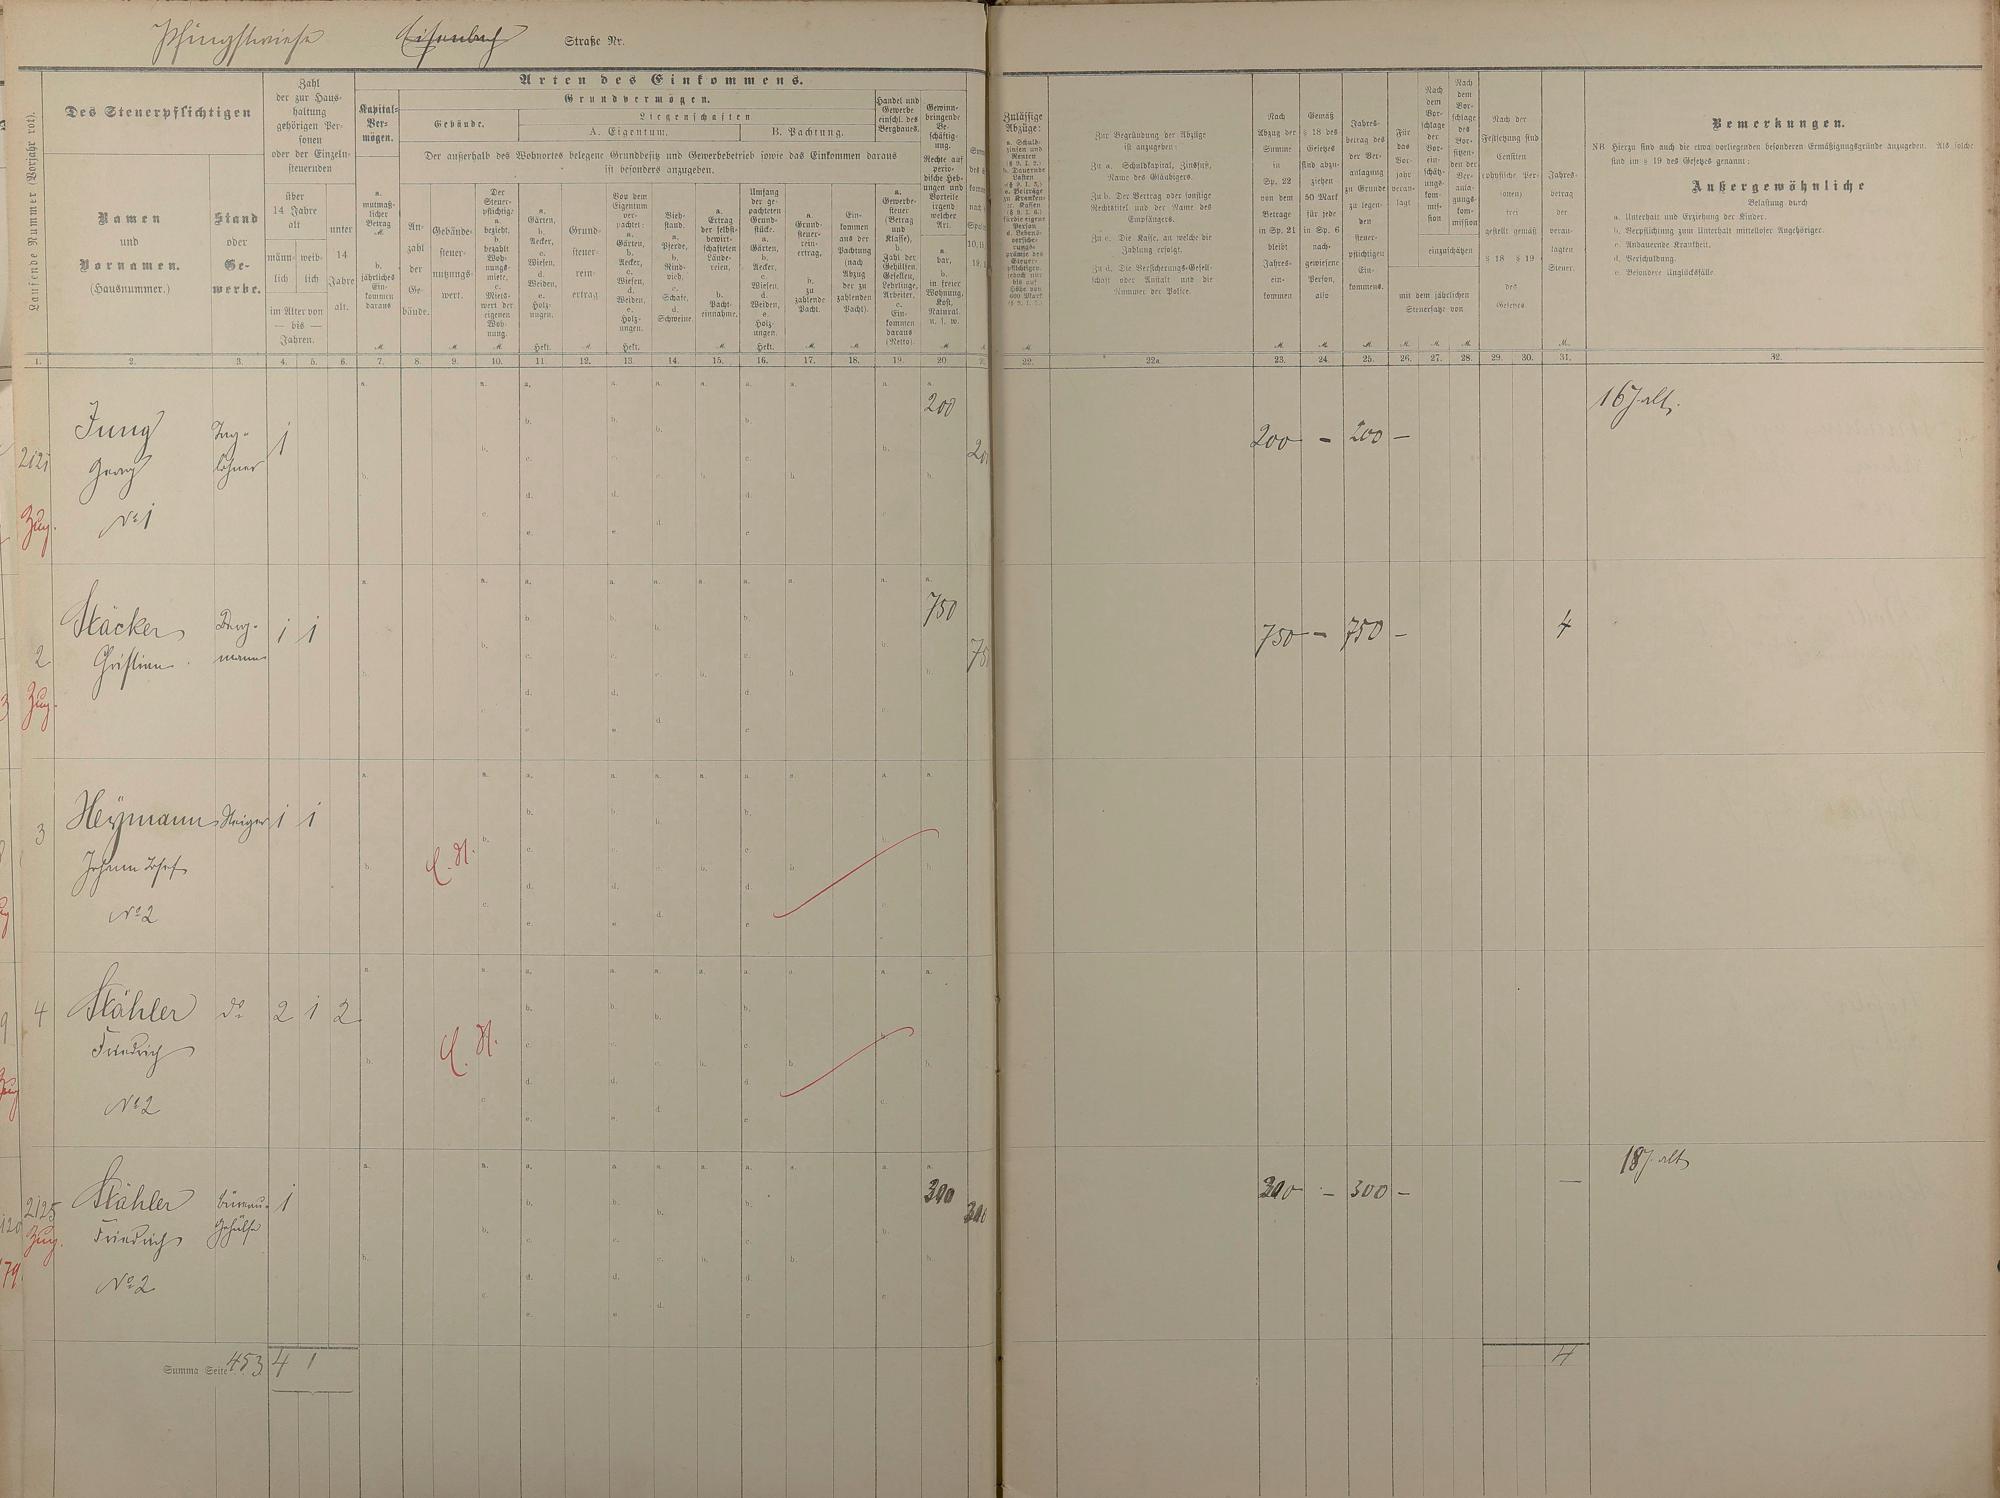 Pfingstwiese Eisenbach Straße Nr.
Laufende Nummer (Vorjahr rot).
Des Steuerpflichtigen
Namen
und
Vornamen.
(Hausnummer.)
Stand
oder
Ge-
werbe.
Zahl
der zur Haus-
haltung
gehörigen Per-
sonen
oder der Einzeln-
steuernden
über
14 Jahre
alt
männ-
lich
weib-
lich
im Alter von
— bis —
Jahren.
unter
14
Jahre
alt.
Arten des Einkommens.
Kapital-
Ver-
mögen.
a.
mutmaß-
licher
Betrag
M.
b.
jährliches
Ein-
kommen
daraus
M.
Grundvermögen.
Gebäude.
Liegenschaften
A. Eigentum.
B. Pachtung.
Der außerhalb des Wohnortes belegene Grundbesitz und Gewerbebetrieb sowie das Einkommen daraus
ist besonders anzugeben.
An-
zahl
der
Ge-
bäude.
Gebäude-
steuer-
nutzungs-
wert.
M.
Der
Steuer-
pflichtige
a.
bezieht,
b.
bezahlt
Woh-
nungs-
miete,
c.
Miets-
wert der
eigenen
Woh-
nung.
M.
a.
Gärten,
b.
Aecker,
c.
Wiesen,
d.
Weiden,
e.
Holz-
ungen.
Hekt.
Grund-
steuer-
rein-
ertrag
M.
Von dem
Eigentum
ver-
pachtet:
a.
Gärten,
b.
Aecker,
c.
Wiesen,
d.
Weiden,
e.
Holz-
ungen.
Hekt.
Vieh-
stand.
a.
Pferde,
b.
Rind-
vieh,
c.
Schafe,
d.
Schweine.
a.
Ertrag
der selbst-
bewirt-
schafteten
Lände-
reien,
b.
Pacht-
einnahme.
M.
Umfang
der ge-
pachteten
Grund-
stücke.
a.
Gärten,
b.
Aecker,
c.
Wiesen,
d.
Weiden,
e.
Holz-
ungen.
Hekt.
a.
Grund-
steuer-
rein-
ertrag,
b.
zu
zahlende
Pacht.
M.
Ein-
kommen
aus der
Pachtung
(nach
Abzug
der zu
zahlenden
Pacht).
M.
Handel und
Gewerbe
einschl. des
Bergbaues.
a.
Gewerbe-
steuer
(Betrag
und
Klasse),
b.
Zahl der
Gehülfen,
Gesellen,
Lehrlinge,
Arbeiter,
c.
Ein-
kommen
daraus
(Netto).
Gewinn-
bringende
Be-
schäftig-
ung.
Rechte auf
perio-
dische Heb-
ungen und
Vorteile
irgend
welcher
Art.
a.
bar,
b.
in freier
Wohnung,
Kost,
Natural.
u. s. w.
M.
Zulässige
Abzüge:
a. Schuld-
zinsen und
Renten
(§ 9. I. 2.)
b. Dauernde
Lasten
(§ 9. I. 3.)
c. Beiträge
zu Kranken-
2c. Kassen
(§ 9. I. 6.)
für die eigene
Person
d. Lebens-
versiche-
rungs-
prämie des
Steuer-
pflichtigen,
jedoch nur
bis auf
Höhe von
600 Mark
(§ 9. I. 7.)
M.
Zur Begründung der Abzüge
ist anzugeben:
Zu a. Schuldkapital, Zinsfuß,
Name des Gläubigers.
Zu b. Der Vertrag oder sonstige
Rechtstitel und der Name des
Empfängers.
Zu c. Die Kasse, an welche die
Zahlung erfolgt.
Zu d. Die Versicherungs-Gesell-
schaft oder Anstalt und die
Nummer der Police.
Nach
Abzug der
Summe
in
Sp. 22
von dem
Betrage
in Sp. 21
bleibt
Jahres-
ein-
kommen
M.
Gemäß
§ 18 des
Gesetzes
sind abzu-
ziehen
50 Mark
für jede
in Sp. 6
nach-
gewiesene
Person,
also
M.
Jahres-
betrag des
der Ver-
anlagung
zu Grunde
zu legen-
den
steuer-
pflichtigen
Ein-
kommens.
M.
Für
das
Vor-
jahr
veran-
lagt
M.
Nach
dem
Vor-
schlage
der
Vor-
ein-
schätz-
ungs-
kom-
mis-
sion
Nach
dem
Vor-
schlage
des
Vor-
sitzen-
den der
Ver-
anla-
gungs-
kom-
mission
einzuschätzen
mit dem jährlichen
Steuersatze von
M. M.
Nach der
Festsetzung sind
Censiten
(physische Per-
sonen)
frei
gestellt gemäß
§ 18 § 19
des
Gesetzes
Jahres-
betrag
der
veran-
lagten
Steuer.
M.
Bemerkungen.
NB. Hierzu sind auch die etwa vorliegenden besonderen Ermäßigungsgründe anzugeben. Als solche
sind im § 19 des Gesetzes genannt:
Außergewöhnliche
Belastung durch
a. Unterhalt und Erziehung der Kinder.
b. Verpflichtung zum Unterhalt mittelloser Angehöriger.
c. Andauernde Krankheit.
d. Verschuldung.
e. Besondere Unglücksfälle.
1. 2. 3. 4. 5. 6. 7. 8. 9. 10. 11. 12. 13. 14. 15. 16. 17. 18. 19. 20. 22. 22a. 23. 24. 25. 26. 27. 28. 29. 30. 31. 32.
2121 Jung Tag- 1 200 200 – 200 – 16 J. alt.
Georg löhner
Zug. No 1
2 Stäcker Berg- 1 1 750 750 – 750 – 4
Christian mann
Zug.
3 Heymann Steiger 1 1
Johann Josef
No 2
4 Stähler do 2 1 2
Friedrich
No 2
2125 Stähler Büreau- 1 300 300 – 300 – — 18 J. alt
Zug. Friedrich Gehülfe
No 2
Summa Seite 453 4 1 4